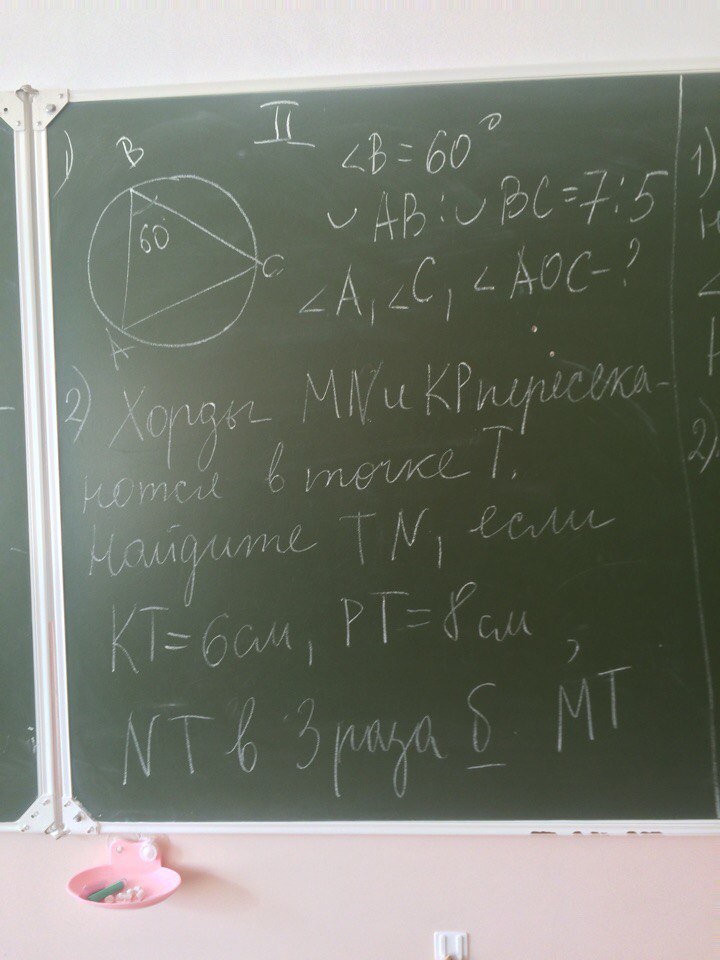 II
1)
∠B = 60°
B
60°
C
A
◡ AB : ◡ BC = 7 : 5
∠A, ∠C, ∠AOC - ?
2) Хорды MN и KP пересека-
ются в точке T.
Найдите TN, если
KT = 6 см, PT = 8 см,
NT в 3 раза б MT
1)
2)